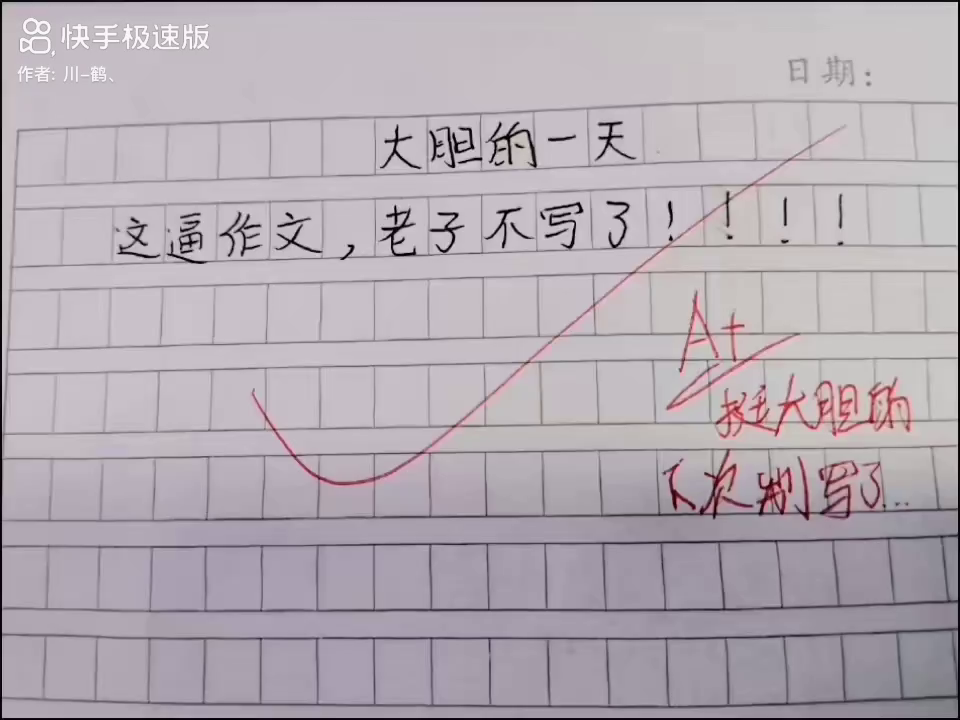 快手极速版
作者: 川-鹤、
日期:
大胆的一天
这逼作文,老子不写了!!!!
A+
挺大胆的
下次别写了...